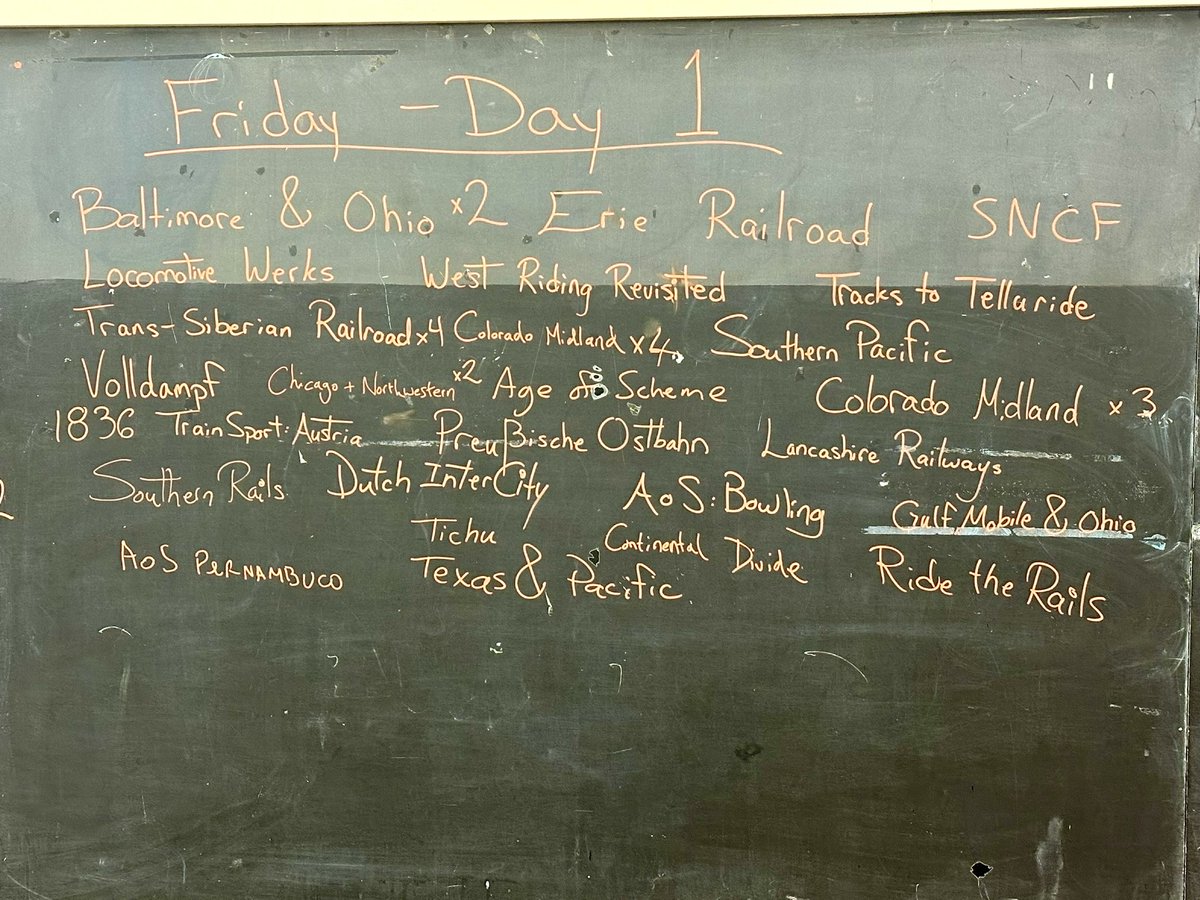 Friday - Day 1
Baltimore & Ohio x2 Erie Railroad SNCF
Locomotive Werks West Riding Revisited Tracks to Telluride
Trans-Siberian Railroad x4 Colorado Midland x4 Southern Pacific
Volldampf Chicago + Northwestern x2 Age of Scheme Colorado Midland x3
1836 TrainSport: Austria Preußische Ostbahn Lancashire Railways
Southern Rails Dutch InterCity AoS: Bowling Gulf, Mobile & Ohio
Tichu Continental Divide
AoS PERNAMBUCO Texas & Pacific Ride the Rails